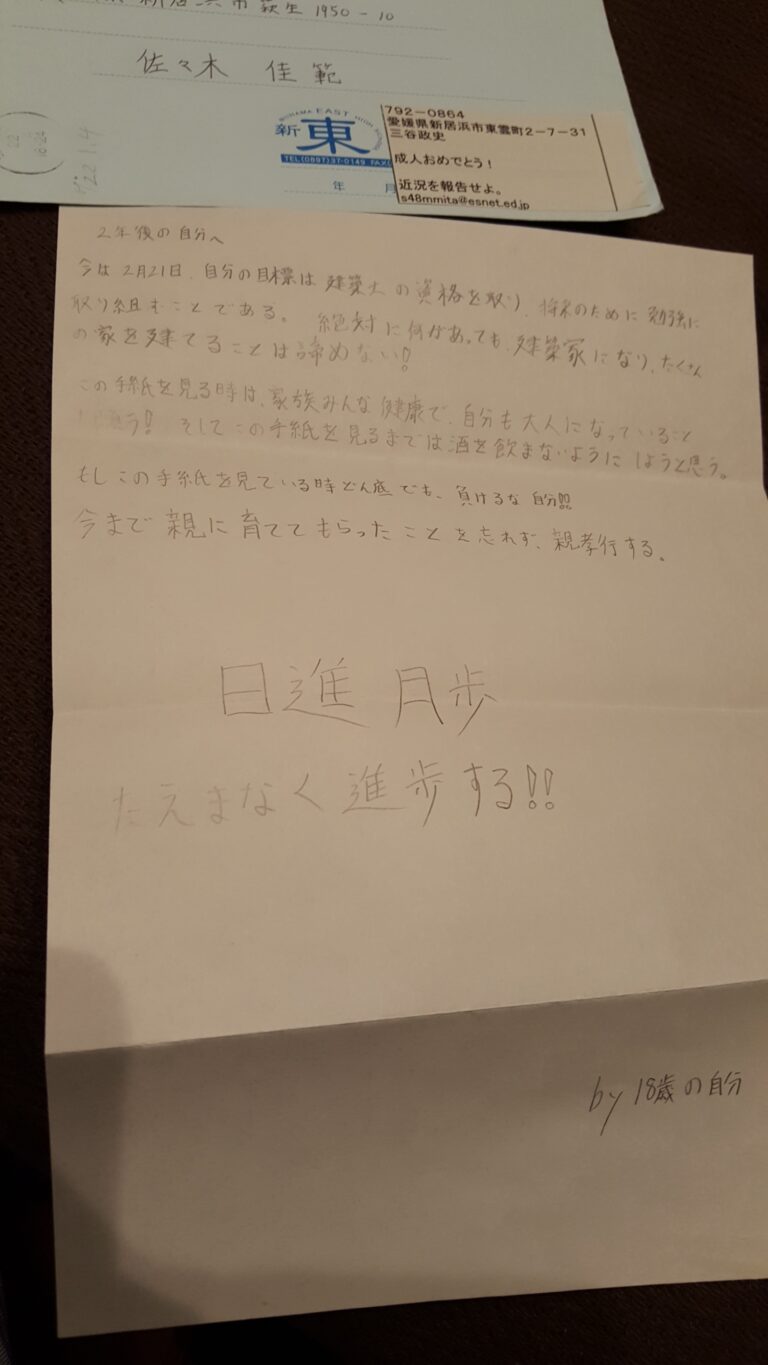 新居浜市萩生1950-10
佐々木 佳範
EAST HIGH
新東
TEL(0897)37-0149 FAX
年 月
792-0864
愛媛県新居浜市東雲町2-7-31
三谷政史
成人おめでとう！
近況を報告せよ。
s48mmita@esnet.ed.jp
'22 1.14
2年後の自分へ
今は2月21日、自分の目標は建築士の資格を取り、将来のために勉強に
取り組むことである。絶対に何があっても、建築家になり、たくさん
の家を建てることは諦めない!
この手紙を見る時は、家族みんな健康で、自分も大人になっていること
う!! そしてこの手紙を見るまでは酒を飲まないようにしようと思う。
もしこの手紙を見ている時どん底でも、負けるな自分!!!
今まで親に育ててもらったことを忘れず、親孝行する。
日進月歩
たえまなく進歩する!!
by 18歳の自分